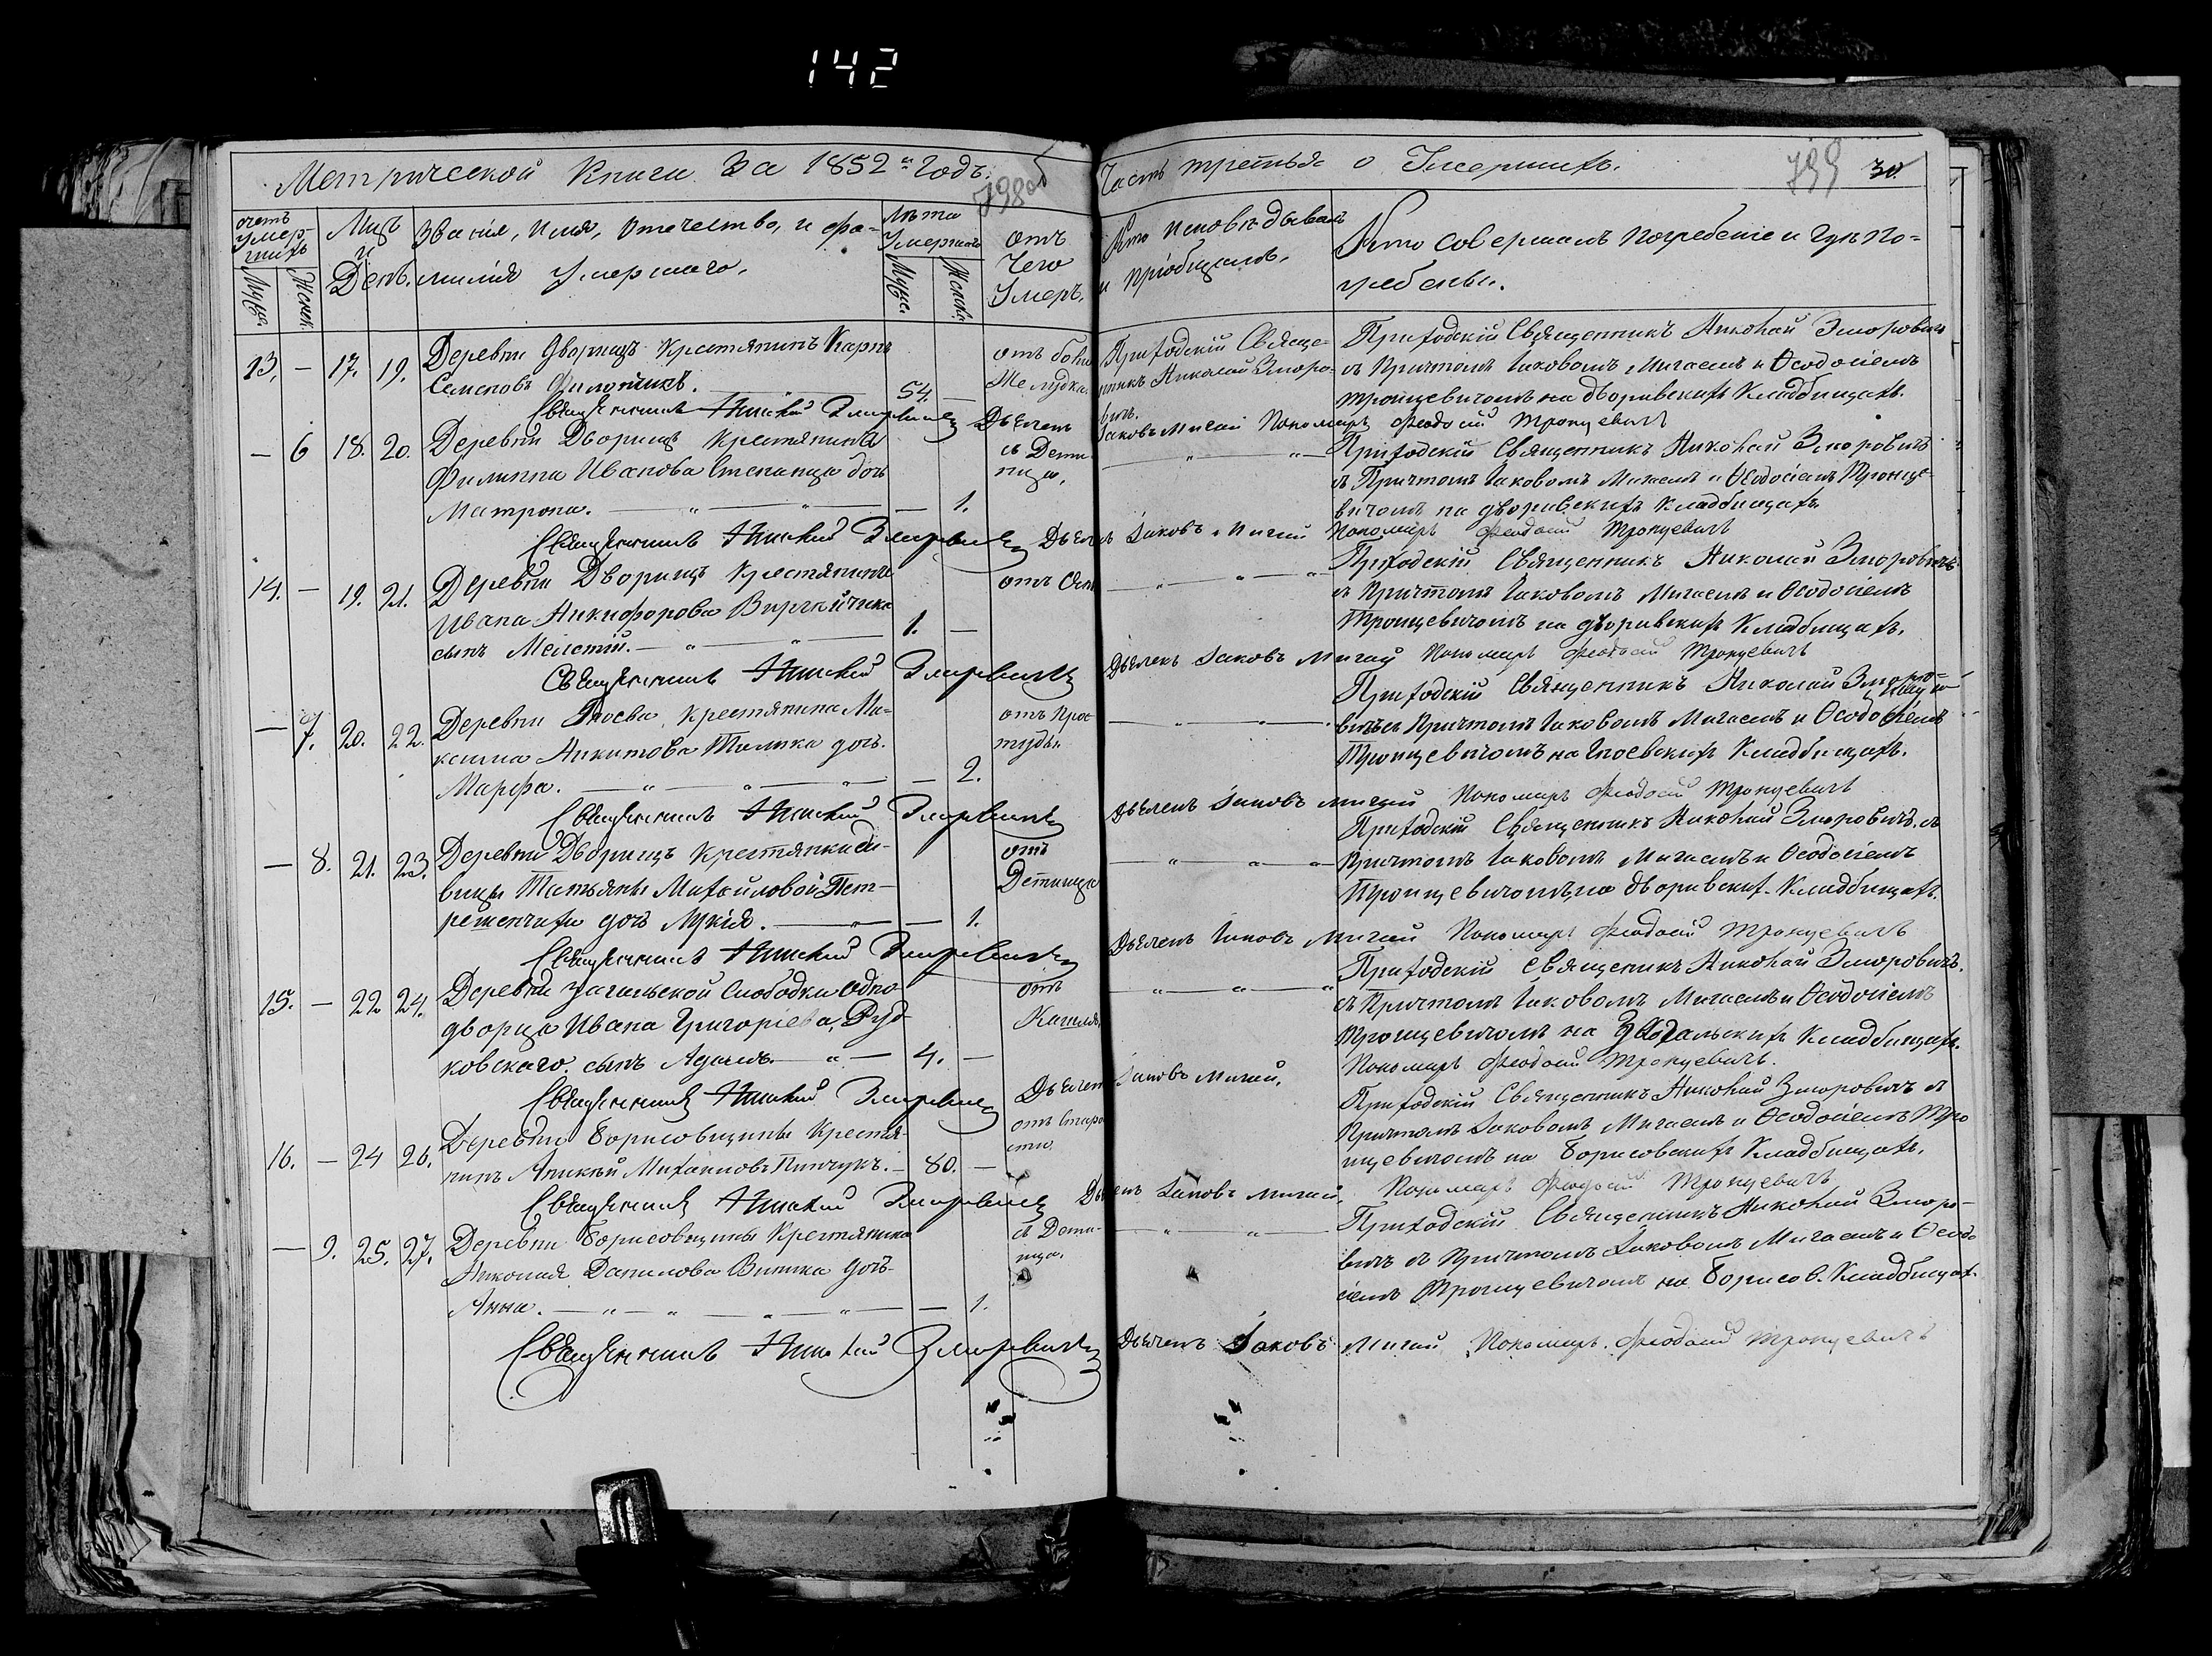 142
Метрической Книги За 1852й Годъ.
798об
Часть третья о Умершихъ.
799 30
Счетъ Умер-шихъ
Мужс. Женск.
Мцъ и День.
Званія, Имя, Отечество, и фа-
милія Умершаго.
Лѣта Умершаго
Мужс. Женска.
отъ Чего Умеръ.
Кто Исповѣдывалъ
и Пріобщалъ.
Кто Совершалъ Погребеніе и Гдѣ По-
гребены.
13. — 17. 19. Деревни Дворищъ Крестянинъ Карпъ
Семеновъ
54. —
отъ боли
Желудка.
Приходскій Свяще-
нникъ Николай Зморо-
вичъ.
Приходскій Священникъ Николай Зморовичъ
съ Причтомъ Іаковомъ Мигаемъ и Ѳеодосіемъ
Тронцевичомъ на дворивскихъ Кладбищахъ.
Священникъ Николай Зморовичъ Дьячекъ Іаковъ Мигай Пономарь Феодосій Тронцевичъ
— 6 18. 20. Деревни Дворищъ Крестянина
Филиппа Иванова Степанца дочь
Матрона. — 1.
съ Дети
нца.
Приходскій Священникъ Николай Зморовичъ
съ Причтомъ Іаковомъ Мигаемъ и Ѳеодосіемъ Тронце-
вичомъ на дворивскихъ Кладбищахъ.
Священникъ Николай Зморовичъ Дьячекъ Іаковъ Мигай Пономарь Феодосій Тронцевичъ
14. — 19. 21. Деревни Дворищъ Крестянина
Ивана Никифорова
сынъ Мелетій. 1. —
отъ
Приходскій Священникъ Николай Зморовичъ
съ Причтомъ Іаковомъ Мигаемъ и Ѳеодосіемъ
Тронцевичомъ на дворивскихъ Кладбищахъ.
Священникъ Николай Зморовичъ Дьячекъ Іаковъ Мигай Пономарь Феодосій Тронцевичъ
— 7. 20. 22. Деревни Гноева, Крестянина Ма-
ксима Никитова дочь.
Марфа. — 2.
отъ Прос
туды.
Приходскій Священникъ Николай Зморо-
вичъ съ Причтомъ Іаковомъ Мигаемъ и Ѳеодосіемъ
Тронцевичомъ на Гноевскихъ Кладбищахъ.
Священникъ Николай Зморовичъ Дьячекъ Іаковъ Мигай Пономарь Феодосій Тронцевичъ
— 8. 21. 23. Деревни Дворищъ Крестянки дѣ-
вицы Татьяны Михайловой Пет-
решенчихи дочь Лукія. — 1.
отъ
Детинца
Приходскій Священникъ Николай Зморовичъ. съ
Причтомъ Іаковомъ Мигаемъ и Ѳеодосіемъ
Тронцевичомъ на Дворивских. Кладбищахъ.
Священникъ Николай Зморовичъ Дьячекъ Іаковъ Мигай Пономарь Феодосій Тронцевичъ
15. — 22 24. Деревни Загальской Слободки Одно-
дворца Ивана Григоріева, Руд-
ковскаго. сынъ Адамъ. 4. —
отъ
Кашля,
Приходскій Священикъ Николай Зморовичъ.
съ Причтомъ Іаковомъ Мигаемъ и Ѳеодосіемъ
Тронцевичомъ на Загальскихъ Кладбищахъ.
Священникъ Николай Зморовичъ Дьячекъ Іаковъ Мигай. Пономарь Феодосій Тронцевичъ.
16. — 24 26. Деревни Борисовщины Крестя-
нинъ Михаиловъ Пинчукъ. — 80. —
отъ Старо
сти.
Приходскій Священникъ Николай Зморовичъ съ
Причтомъ Іаковомъ Мигаемъ и Ѳеодосіемъ Тро
нцевичомъ на Борисовскихъ Кладбищахъ.
Священникъ Николай Зморовичъ Дьячекъ Іаковъ Мигай. Пономарь Феодосій Тронцевичъ
— 9. 25. 27. Деревни Борисовщины Крестянина
Николая Данилова дочь
Анна. — 1.
съ Дети-
нца.
Приходскій Священникъ Николай Зморо-
вичъ съ Причтомъ Іаковомъ Мигаемъ и Ѳеодо
сіемъ Тронцевичомъ на Борисов. Кладбищах.
Священникъ Николай Зморовичъ Дьячекъ Іаковъ Мигай Пономарь. Феодосій Тронцевичъ